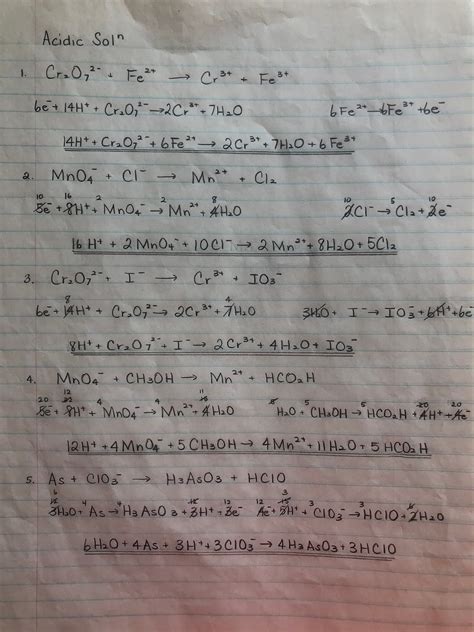 Acidic Solⁿ
1. Cr₂O₇²⁻ + Fe²⁺ → Cr³⁺ + Fe³⁺
6e⁻ + 14H⁺ + Cr₂O₇²⁻ → 2Cr³⁺ + 7H₂O 6Fe²⁺ → 6Fe³⁺ + 6e⁻
14H⁺ + Cr₂O₇²⁻ + 6Fe²⁺ → 2Cr³⁺ + 7H₂O + 6Fe³⁺
2. MnO₄⁻ + Cl⁻ → Mn²⁺ + Cl₂
10 16 2 2 8 10 5 10
5e⁻ + 8H⁺ + MnO₄⁻ → Mn²⁺ + 4H₂O 2Cl⁻ → Cl₂ + 2e⁻
16H⁺ + 2MnO₄⁻ + 10Cl⁻ → 2Mn²⁺ + 8H₂O + 5Cl₂
3. Cr₂O₇²⁻ + I⁻ → Cr³⁺ + IO₃⁻
8 4
6e⁻ + 14H⁺ + Cr₂O₇²⁻ → 2Cr³⁺ + 7H₂O 3H₂O + I⁻ → IO₃⁻ + 6H⁺ + 6e⁻
8H⁺ + Cr₂O₇²⁻ + I⁻ → 2Cr³⁺ + 4H₂O + IO₃⁻
4. MnO₄⁻ + CH₃OH → Mn²⁺ + HCO₂H
20 12 4 4 11 5 5 20 20
5e⁻ + 8H⁺ + MnO₄⁻ → Mn²⁺ + 4H₂O H₂O + CH₃OH → HCO₂H + 4H⁺ + 4e⁻
12H⁺ + 4MnO₄⁻ + 5CH₃OH → 4Mn²⁺ + 11H₂O + 5HCO₂H
5. As + ClO₃⁻ → H₃AsO₃ + HClO
6 12 4 4 12 12 12 3 15 3 3
3H₂O + As → H₃AsO₃ + 3H⁺ + 3e⁻ 4e⁻ + 5H⁺ + ClO₃⁻ → HClO + 2H₂O
6H₂O + 4As + 3H⁺ + 3ClO₃⁻ → 4H₃AsO₃ + 3HClO